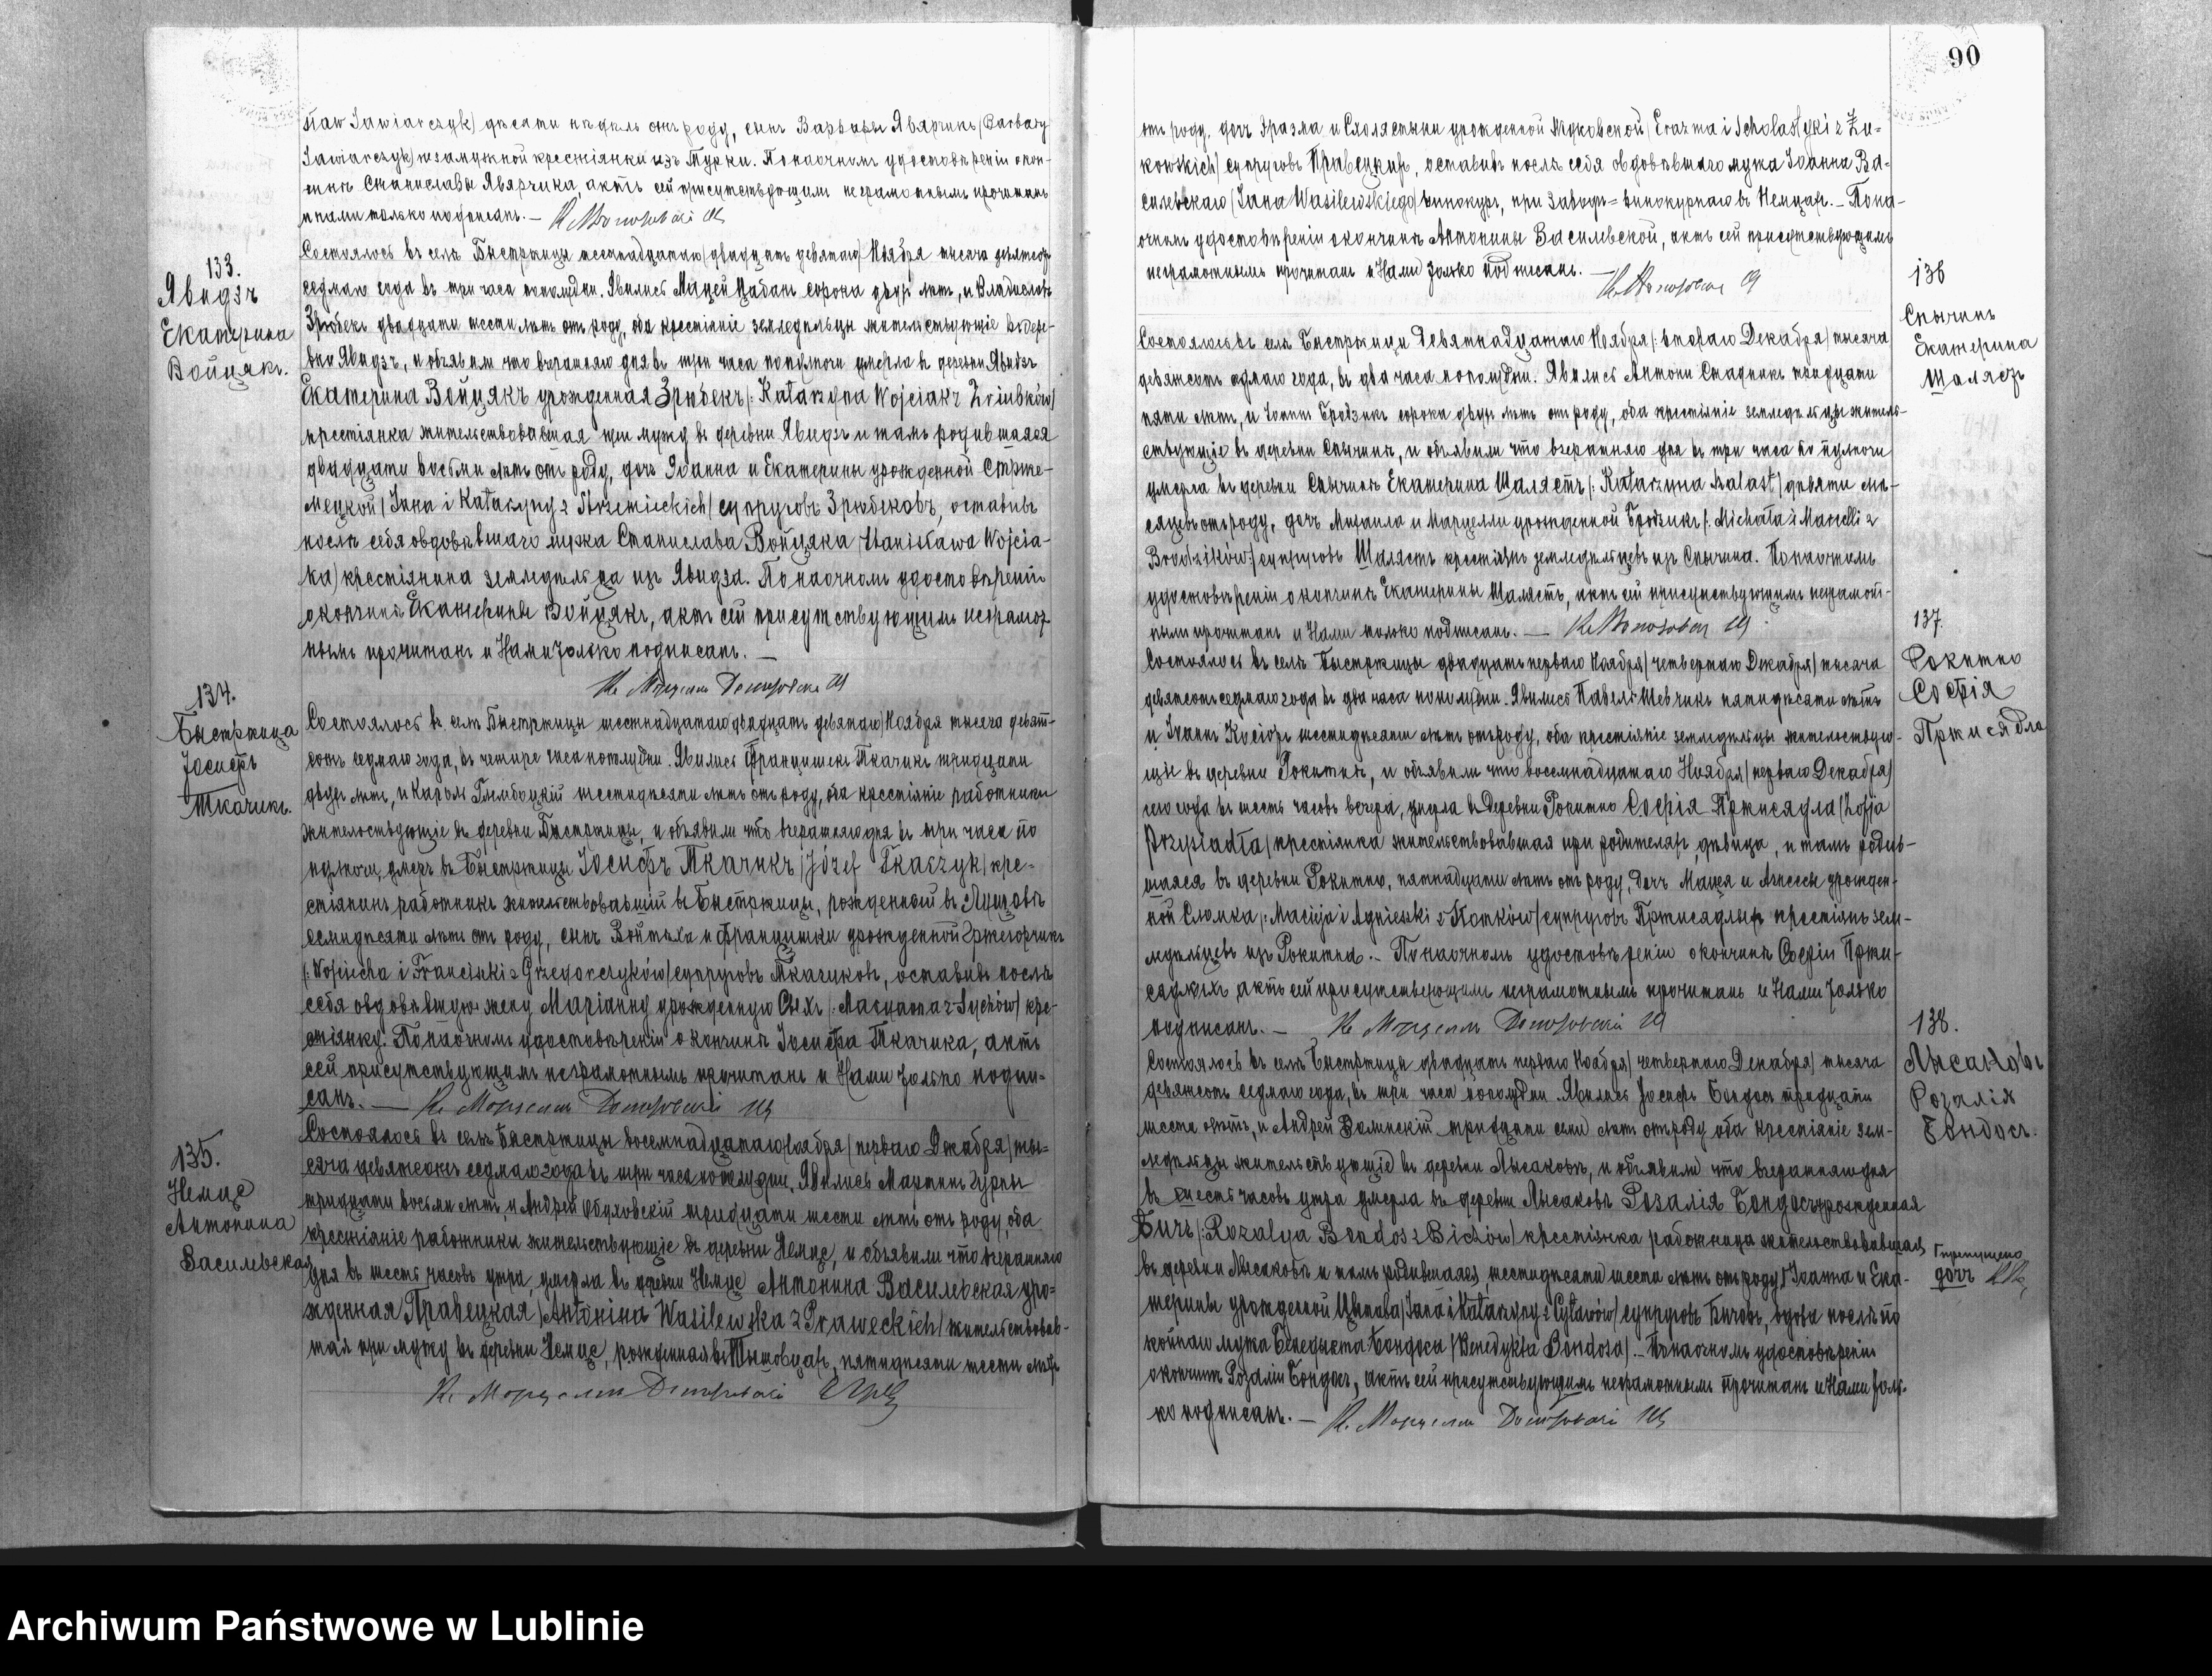 sław Jawiarczyk) десяти недѣль отъ роду, сынъ Варвары Явярчикъ (Barbary
Jawiarczyk) незамужной крестьянки изъ Турки. По наочномъ удостовѣреніи о кон-
чинѣ Станислава Явярчика, актъ сей присутствующимъ неграмотнымъ прочитанъ
и нами только подписанъ. —
133.
Явидзъ
Екатерина
Войцякъ.
Состоялось въ селѣ Быстржицы шестнадцатаго (двадцать девятаго) Ноября тысяча девятсотъ
седмаго года въ три часа пополудни. Явились Мацей Цабанъ сорока двухъ лѣтъ, и Владиславъ
Зрюбекъ двадцати шести лѣтъ отъ роду, оба крестьяніе земледѣльцы жительствующіе въ дере-
вни Явидзъ, и объявили что вчерашняго дня въ три часа пополуночи умерла въ деревни Явидзъ
Екатерина Войцякъ урожденная Зрюбекъ (: Katarzyna Wojciak z Zriubków)
крестьянка жительствовавшая при мужу въ деревни Явидзъ и тамъ родившаяся
двадцати восьми лѣтъ отъ роду, дочь Іоанна и Екатерины урожденной Стрже-
мецкой (Jana i Katarzyny z Strzemieckich) супруговъ Зрюбековъ, оставивъ
послѣ себя овдовѣвшаго мужа Станислава Войцяка (Stanisława Wojcia-
ka) крестьянина земледѣльца изъ Явидза. По наочномъ удостовѣреніи
о кончинѣ Екатерины Войцякъ, актъ сей присутствующимъ неграмот-
нымъ прочитанъ и Нами только подписанъ. —
134.
Быстржица
Іосифъ
Ткачикъ.
Состоялось въ селѣ Быстржицы шестнадцатаго (двадцать девятаго) Ноября тысяча девят-
сотъ седмаго года, въ четыре часа пополудни. Явились Францишекъ Ткачикъ тридцати
двухъ лѣтъ, и Кароль шестидесяти лѣтъ отъ роду, оба крестьяніе работники
жительствующіе въ деревни Быстржицы, и объявили что вчерашняго дня въ три часа по
полночи, умеръ въ Быстржицы Іосифъ Ткачикъ (Józef Tkaczyk) кре-
стьянинъ работникъ жительствовавшій въ Быстржицы, рожденный въ
семидесяти лѣтъ отъ роду, сынъ Войтѣха и Францишки урожденной Гржегорчикъ
(: Wojciecha i Franciszki z Grzegorczyków) супруговъ Ткачиковъ, оставивъ послѣ
себя овдовѣвшую жену Маріанну урожденную Сыхъ (: Maryanna z Sychów) кре-
стьянку. По наочномъ удостовѣреніи о кончинѣ Іосифа Ткачика, актъ
сей присутствующимъ неграмотнымъ прочитанъ и Нами только подпи-
санъ. —
135.
Немце
Антонина
Васильевская
Состоялось въ селѣ Быстржицы восемнадцатаго Ноября (перваго Декабря) ты-
сяча девятсотъ седмаго года въ три часа пополудни. Явились Мартинъ Гурны
тридцати восьми лѣтъ, и Андрей тридцати шести лѣтъ отъ роду, оба
крестьяніе работники жительствующіе въ деревни Немце, и объявили что вчерашняго
дня въ шесть часовъ утра, умерла въ деревни Немце Антонина Василевская уро-
жденная Правецкая (Antonina Wasilewska z Praweckich) жительствовав-
шая при мужу въ деревни Немце, рожденная въ пятидесяти шести лѣтъ
90
отъ роду, дочь Эразма и Схолястыки урожденной Жуковской (Erazma i Scholastyki z Żu-
kowskich) супруговъ Правецкихъ, оставивъ послѣ себя овдовѣвшаго мужа Іоанна Ва-
силевскаго (Jana Wasilewskiego) винокура, при заводѣ винокурномъ въ Немцахъ. — По на-
очномъ удостовѣреніи о кончинѣ Антонины Василевской, актъ сей присутствующимъ
неграмотнымъ прочитанъ и Нами только подписанъ. —
136
Спычинъ
Екатерина
Шалясть
Состоялось въ селѣ Быстржицы девятнадцатаго Ноября (: втораго Декабря) тысяча
девятсотъ седмаго года, въ два часа пополудни. Явились Антони Стадникъ тридцати
пяти лѣтъ, и Іоаннъ Бродзикъ сорока двухъ лѣтъ отъ роду, оба крестьяніе земледѣльцы житель-
ствующіе въ деревни Спычинъ, и объявили что вчерашняго дня въ три часа по полночи
умерла въ деревни Спычинъ Екатерина Шалясть (: Katarzyna Szalast) девяти мѣ-
сяцевъ отъ роду, дочь Михаила и Марцелли урожденной Бродзикъ (: Michała i Marcelli z
Brodzików:) супруговъ Шалясть крестьянъ земледѣльцевъ изъ Спычина. По наочномъ
удостовѣреніи о кончинѣ Екатерины Шалясть, актъ сей присутствующимъ неграмот-
нымъ прочитанъ и Нами только подписанъ. —
137.
Рокитно
Софія
Пржисядла
Состоялось въ селѣ Быстржицы двадцать перваго Ноября (четвертаго Декабря) тысяча
девятсотъ седмаго года въ два часа пополудни. Явились Павелъ Шевчикъ пятидесяти лѣтъ
и Іоаннъ Косіоръ шестидесяти лѣтъ отъ роду, оба крестьяніе земледѣльцы жительствую-
щіе въ деревни Рокитнѣ, и объявили что восемнадцатаго Ноября (перваго Декабря)
сего года въ шесть часовъ вечера, умерла въ деревни Рокитно Софія Пржисядла (Zofja
Przysiadła) крестьянка жительствовавшая при родителяхъ, дѣвица, и тамъ родив-
шаяся въ деревни Рокитно, пятнадцати лѣтъ отъ роду, дочь Мацея и Агнесы урожден-
ной (: Macieja i Agnieszki z Kotków) супруговъ Пржисядлыхъ крестьянъ зем-
ледѣльцевъ изъ Рокитна. — По наочномъ удостовѣреніи о кончинѣ Софіи Пржи-
сядлыхъ актъ сей присутствующимъ неграмотнымъ прочитанъ и Нами только
подписанъ. —
138.
Лысаковъ
Розалія
Бондосъ.
Состоялось въ селѣ Быстржицы двадцать перваго Ноября (четвертаго Декабря) тысяча
девятсотъ седмаго года, въ три часа пополудни. Явились Іосифъ Бондосъ тридцати
шести лѣтъ, и Андрей Волинскій тридцати семи лѣтъ отъ роду оба крестьяніе зем-
ледѣльцы жительствующіе въ деревни Лысаковъ, и объявили что вчерашняго дня
въ шесть часовъ утра умерла въ деревни Лысаковъ Розалія Бондосъ урожденная
Бичъ (: Rozalya Bondos z Biczów) крестьянка работница жительствовавшая
въ деревни Лысаковъ и тамъ родившаяся, шестидесяти шести лѣтъ отъ роду, Іоанна и Ека-
терины урожденной (Jana i Katarzyny z Cyławów) супруговъ Бичовъ, вдова послѣ по-
койнаго мужа Бенедыкта Бондоса (Benedykta Bondosa). — По наочномъ удостовѣреніи
о кончинѣ Розаліи Бондосъ, актъ сей присутствующимъ неграмотнымъ прочитанъ и Нами толь-
ко подписанъ. —
пропущено
дочь
Archiwum Państwowe w Lublinie